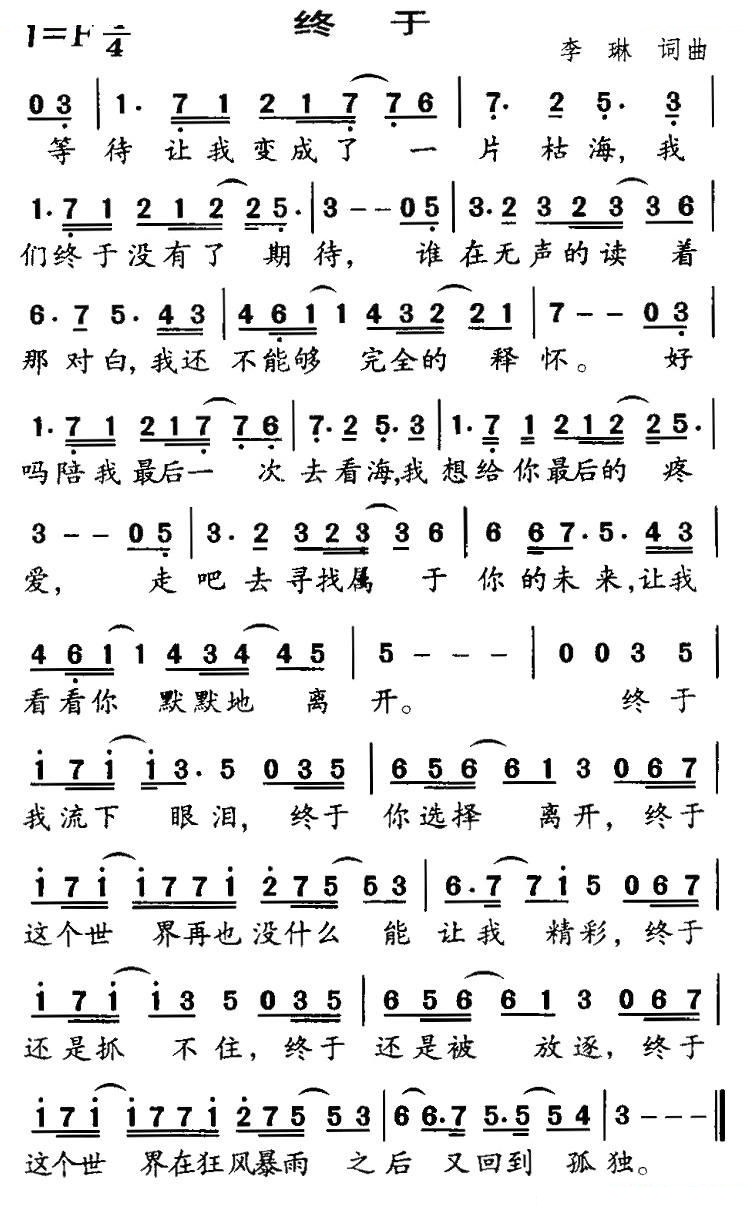 终 于
1=F 4/4
李 琳 词曲
0 3 | 1. 7 1 2 1 7 7 6 | 7. 2 5. 3 |
等 待 让 我 变 成 了 一 片 枯 海, 我
1. 7 1 2 1 2 2 5. | 3 - - 0 5 | 3. 2 3 2 3 3 6 |
们 终 于 没 有 了 期 待, 谁 在 无 声 的 读 着
6. 7 5. 4 3 | 4 6 1 1 4 3 2 2 1 | 7 - - 0 3 |
那 对 白, 我 还 不 能 够 完 全 的 释 怀。 好
1. 7 1 2 1 7 7 6 | 7. 2 5. 3 | 1. 7 1 2 1 2 2 5. |
吗 陪 我 最 后 一 次 去 看 海, 我 想 给 你 最 后 的 疼
3 - - 0 5 | 3. 2 3 2 3 3 6 | 6 6 7. 5. 4 3 |
爱, 走 吧 去 寻 找 属 于 你 的 未 来, 让 我
4 6 1 1 4 3 4 4 5 | 5 - - - | 0 0 3 5 |
看 看 你 默 默 地 离 开。 终 于
1̇ 7 1̇ 1̇ 3. 5 0 3 5 | 6 5 6 6 1 3 0 6 7 |
我 流 下 眼 泪, 终 于 你 选 择 离 开, 终 于
1̇ 7 1̇ 1̇ 7 7 1̇ 2̇ 7 5 5 3 | 6. 7 7 1̇ 5 0 6 7 |
这 个 世 界 再 也 没 什 么 能 让 我 精 彩, 终 于
1̇ 7 1̇ 1̇ 3 5 0 3 5 | 6 5 6 6 1 3 0 6 7 |
还 是 抓 不 住, 终 于 还 是 被 放 逐, 终 于
1̇ 7 1̇ 1̇ 7 7 1̇ 2̇ 7 5 5 3 | 6 6. 7 5. 5 5 4 | 3 - - - ‖
这 个 世 界 在 狂 风 暴 雨 之 后 又 回 到 孤 独。